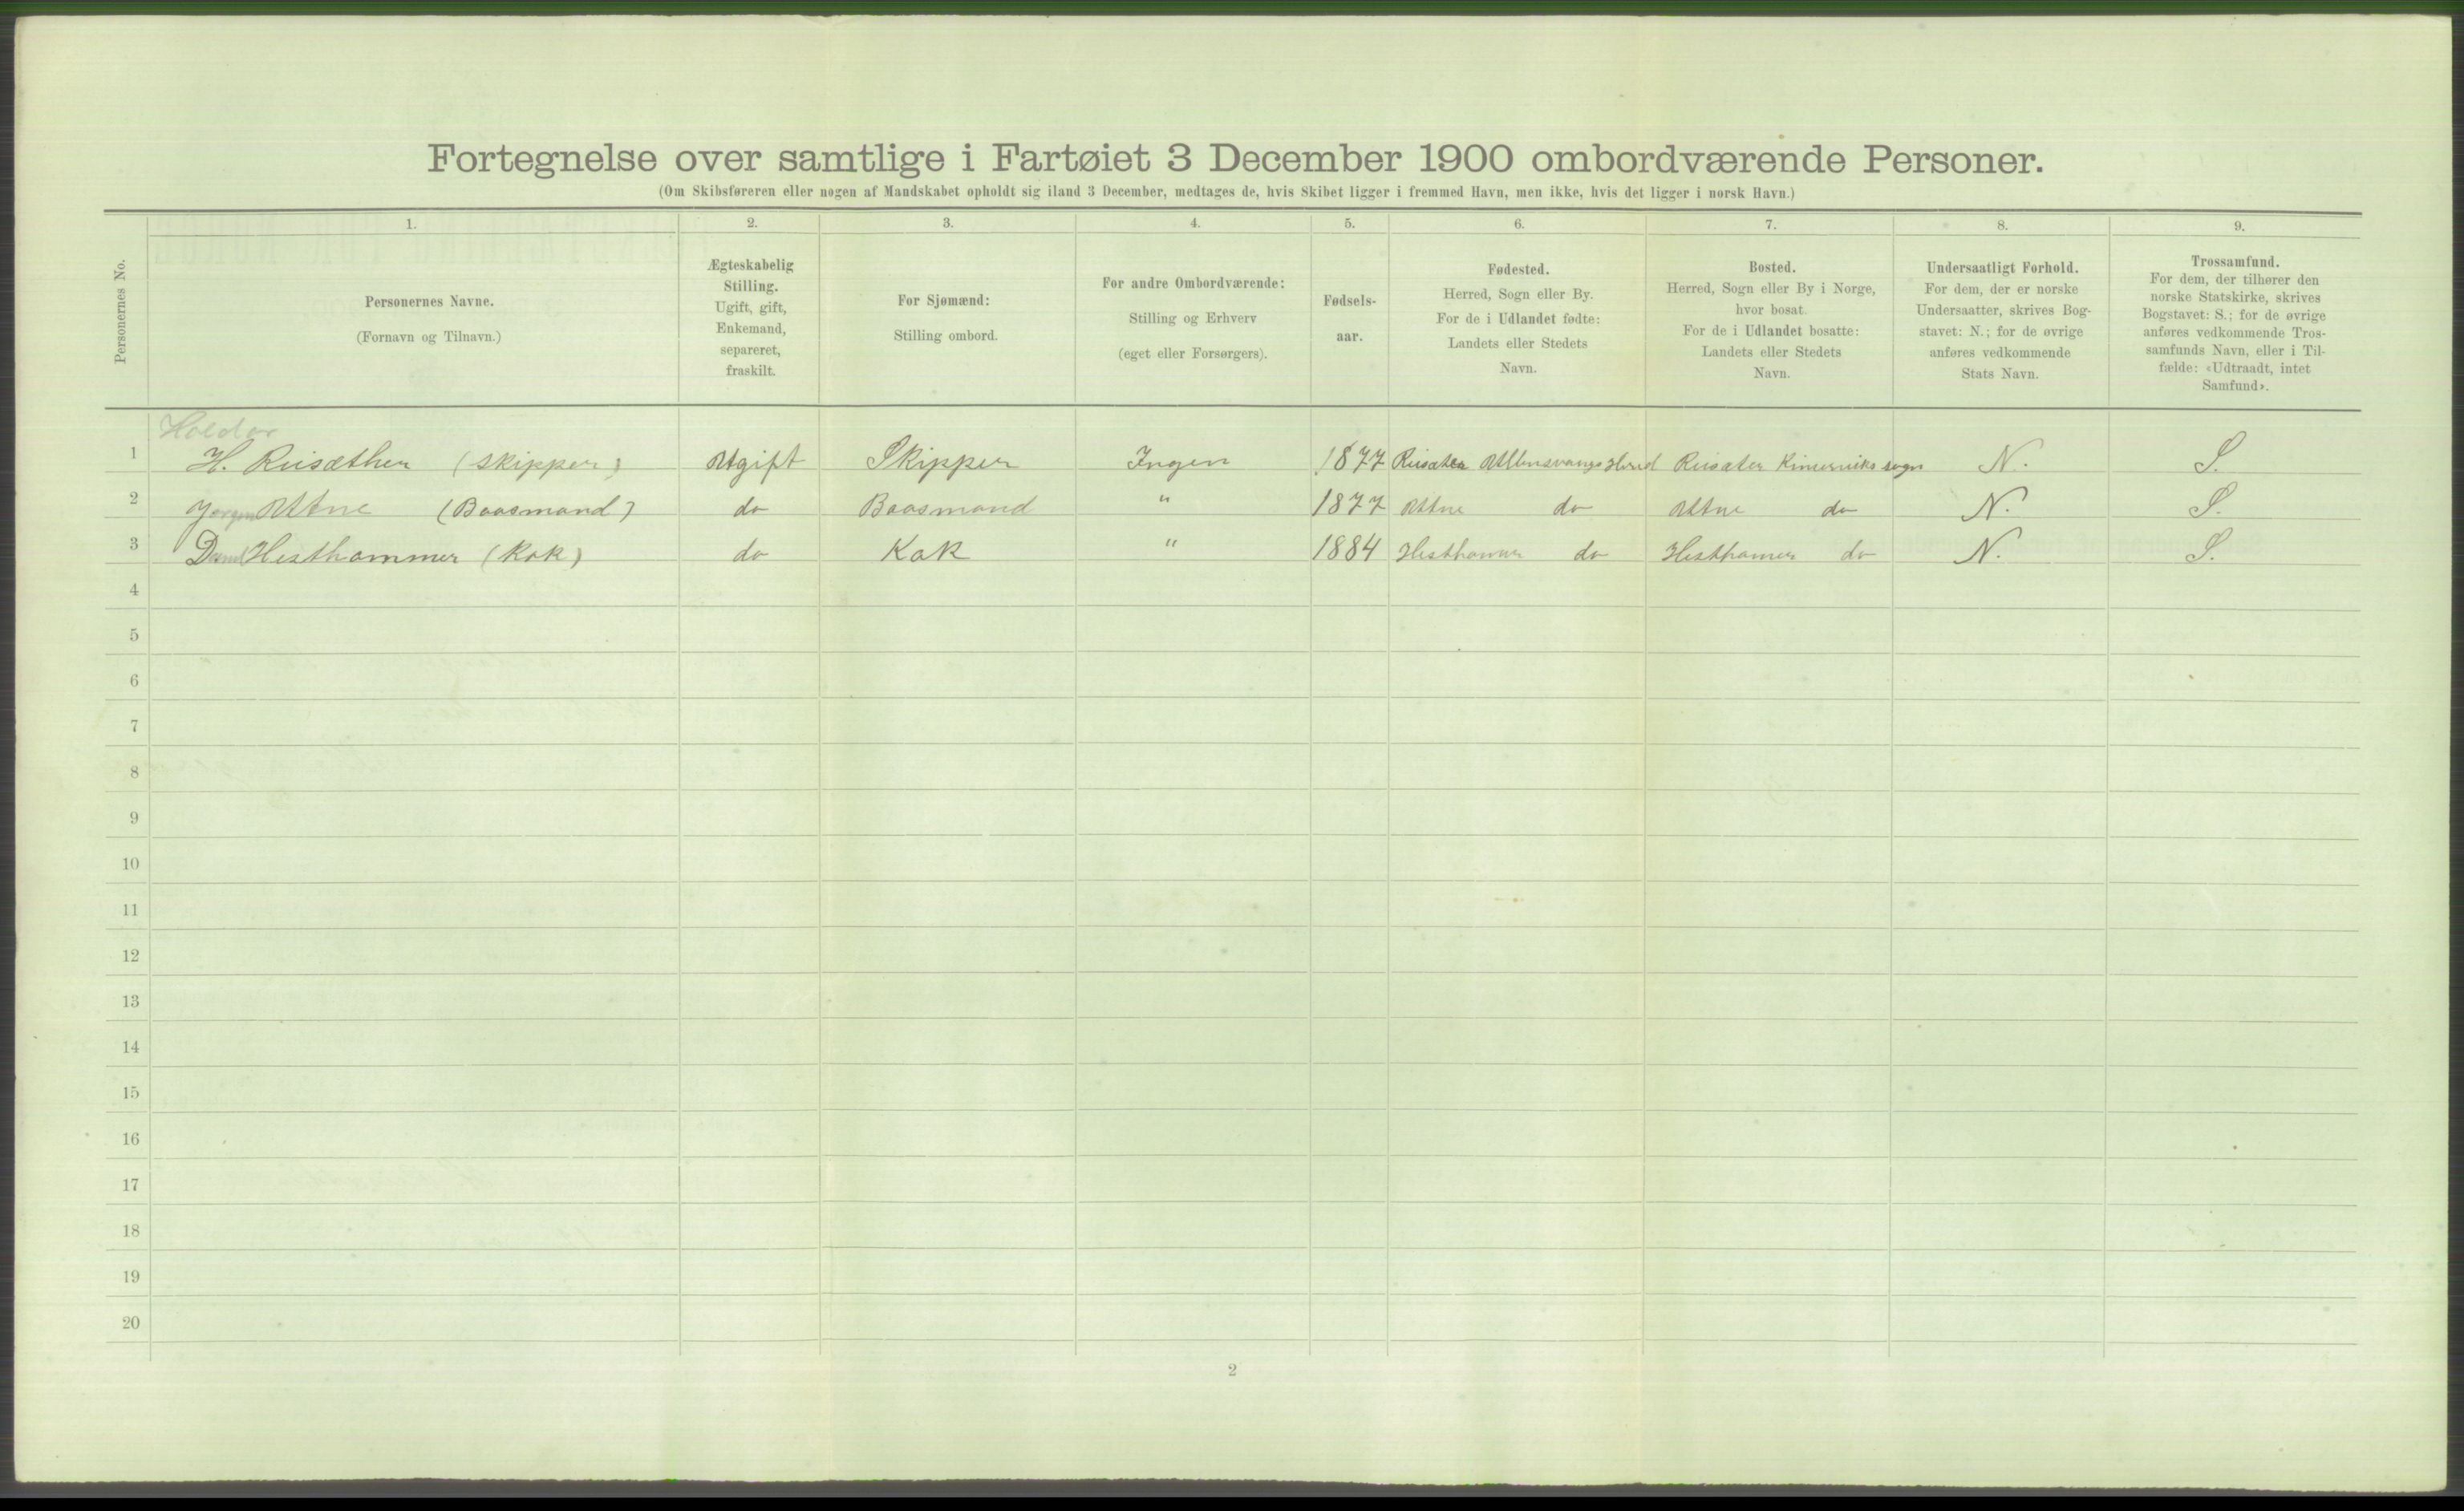 Fortegnelse over samtlige i Fartøiet 3 December 1900 ombordværende Personer.
(Om Skibsføreren eller nogen af Mandskabet opholdt sig iland 3 December, medtages de, hvis Skibet ligger i fremmed Havn, men ikke, hvis det ligger i norsk Havn.)
1. 2. 3. 4. 5. 6. 7. 8. 9.
Personernes No.
Personernes Navne.
(Fornavn og Tilnavn.)
Ægteskabelig
Stilling.
Ugift, gift,
Enkemand,
separeret,
fraskilt.
For Sjømænd:
Stilling ombord.
For andre Ombordværende:
Stilling og Erhverv
(eget eller Forsørgers).
Fødsels-
aar.
Fødested.
Herred, Sogn eller By.
For de i Udlandet fødte:
Landets eller Stedets
Navn.
Bosted.
Herred, Sogn eller By i Norge,
hvor bosat.
For de i Udlandet bosatte:
Landets eller Stedets
Navn.
Undersaatligt Forhold.
For dem, der er norske
Undersaatter, skrives Bog-
stavet: N.; for de øvrige
anføres vedkommende
Stats Navn.
Trossamfund.
For dem, der tilhører den
norske Statskirke, skrives
Bogstavet: S.; for de øvrige
anføres vedkommende Tros-
samfunds Navn, eller i Til-
fælde: «Udtraadt, intet
Samfund».
Haldor
1 H. Reisæther (Skipper) Utgift Skipper Ingen 1877 Reisæter Ullensvangs Herred Reisæter Kinserviks sogn N. S.
2 Jørgen Utne (Baasmand) do Baasmand " 1877 Utne do Utne do N. S.
3 Hesthammer (Kok) do Kok " 1884 Hesthamer do Hesthamer do N. S.
4
5
6
7
8
9
10
11
12
13
14
15
16
17
18
19
20
2